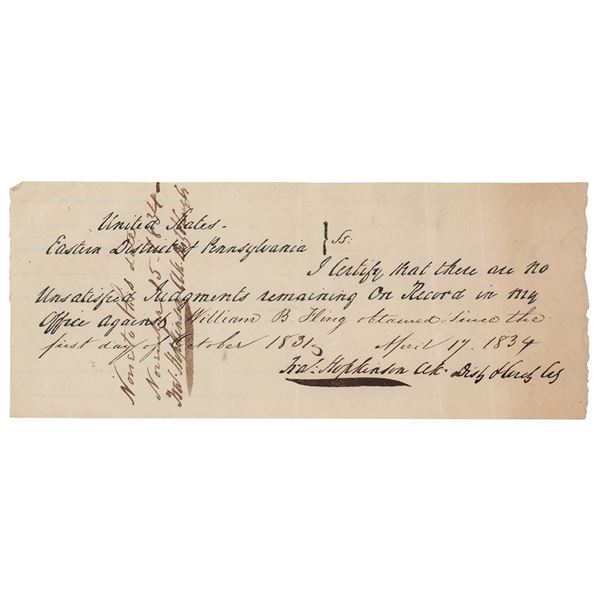 United States.
Eastern District of Pennsylvania } Ss:
I Certify that there are no
Unsatisfied Judgments remaining On Record in my
Office against William B Fling obtained since the
first day of October 1831 April 17. 1834
Fra.s Hopkinson Clk. Dist & Circt Ct
None to this date
Nov 15 1834
Fra.s Hopkinson Clk